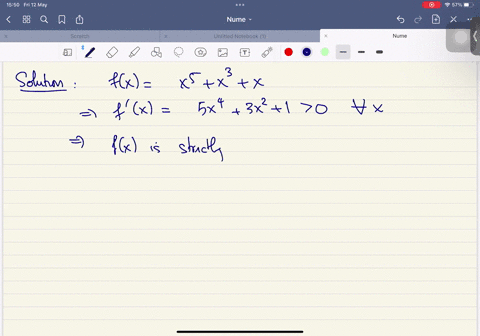 15:50 Fri 13 May
57%
Nume
Scratch
Untitled Notebook (1)
Nume
Solution : f(x) = x⁵ + x³ + x
⇒ f'(x) = 5x⁴ + 3x² + 1 > 0 ∀ x
⇒ f(x) is strictly